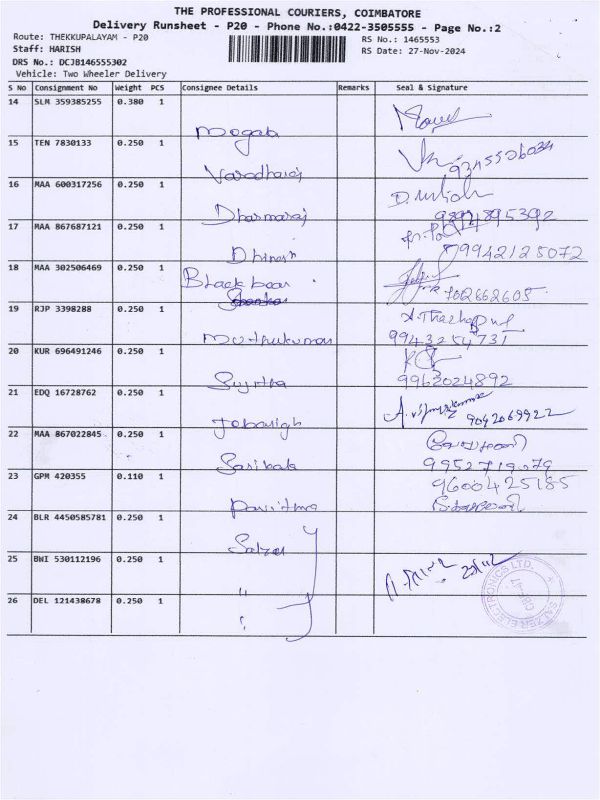 THE PROFESSIONAL COURIERS, COIMBATORE
Delivery Runsheet - P20 - Phone No.:0422-3505555 - Page No.:2
Route: THEKKUPALAYAM - P20
RS No.: 1465553
Staff: HARISH
RS Date: 27-Nov-2024
DRS No.: DCJB146555302
Vehicle: Two Wheeler Delivery
S No Consignment No Weight PCS Consignee Details Remarks Seal & Signature
14 SLM 359385255 0.380 1
15 TEN 7830133 0.250 1
Varadharaj 9345526034
16 MAA 600317256 0.250 1
Dharmaraj
17 MAA 867687121 0.250 1
Dhinesh 9942125072
18 MAA 302506469 0.250 1
Blackboar
702662605
19 RJP 3398288 0.250 1
Muthukumar 9943254731
20 KUR 696491246 0.250 1
Sujitha 9963024892
21 EDQ 16728762 0.250 1
9042069922
22 MAA 867022845 0.250 1
Sasikala 9952719079
23 GPM 420355 0.110 1
9600425185
Pavithra
24 BLR 4450585781 0.250 1
Salzer
25 BWI 530112196 0.250 1
"
26 DEL 121438678 0.250 1
"
SALZER ELECTRONICS LTD.
CBE-47